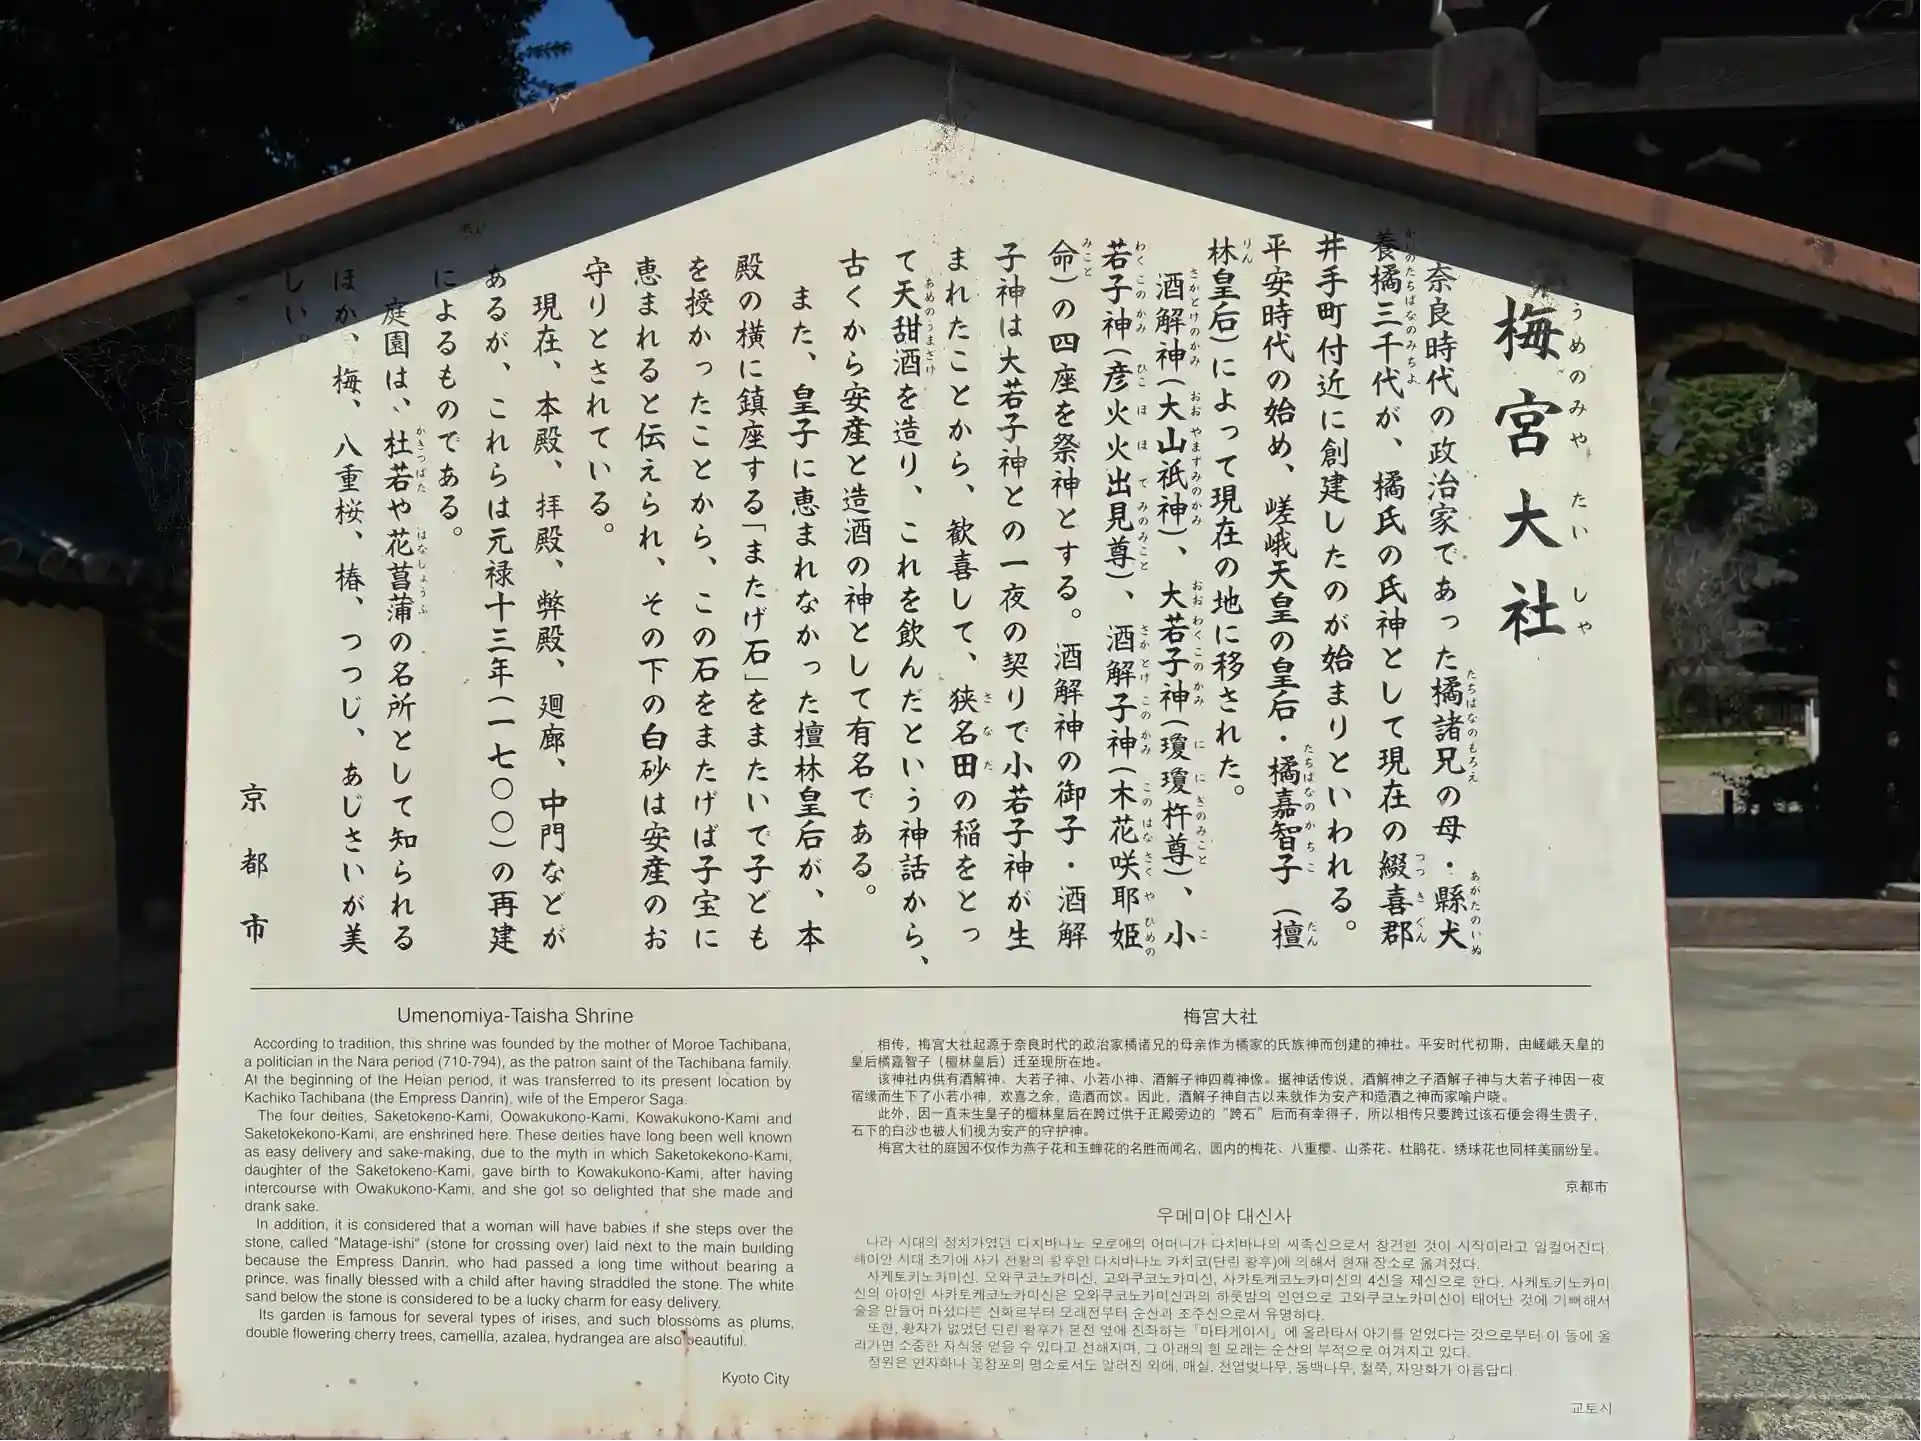 梅宮大社
奈良時代の政治家であった橘諸兄の母・縣犬
養橘三千代が、橘氏の氏神として現在の綴喜郡
井手町付近に創建したのが始まりといわれる。
平安時代の始め、嵯峨天皇の皇后・橘嘉智子（檀
林皇后）によって現在の地に移された。
酒解神（大山祇神）、大若子神（瓊瓊杵尊）、小
若子神（彦火火出見尊）、酒解子神（木花咲耶姫
命）の四座を祭神とする。酒解神の御子・酒解
子神は大若子神との一夜の契りで小若子神が生
まれたことから、歓喜して、狭名田の稲をとっ
て天甜酒を造り、これを飲んだという神話から、
古くから安産と造酒の神として有名である。
また、皇子に恵まれなかった檀林皇后が、本
殿の横に鎮座する「またげ石」をまたいで子ども
を授かったことから、この石をまたげば子宝に
恵まれると伝えられ、その下の白砂は安産のお
守りとされている。
現在、本殿、拝殿、弊殿、廻廊、中門などが
あるが、これらは元禄十三年（一七〇〇）の再建
によるものである。
庭園は、杜若や花菖蒲の名所として知られる
ほか、梅、八重桜、椿、つつじ、あじさいが美
しい。
京都市
Umenomiya-Taisha Shrine
According to tradition, this shrine was founded by the mother of Moroe Tachibana,
a politician in the Nara period (710-794), as the patron saint of the Tachibana family.
At the beginning of the Heian period, it was transferred to its present location by
Kachiko Tachibana (the Empress Danrin), wife of the Emperor Saga.
The four deities, Saketokeno-Kami, Oowakukono-Kami, Kowakukono-Kami and
Saketokekono-Kami, are enshrined here. These deities have long been well known
as easy delivery and sake-making, due to the myth in which Saketokekono-Kami,
daughter of the Saketokeno-Kami, gave birth to Kowakukono-Kami, after having
intercourse with Owakukono-Kami, and she got so delighted that she made and
drank sake.
In addition, it is considered that a woman will have babies if she steps over the
stone, called "Matage-ishi" (stone for crossing over) laid next to the main building
because the Empress Danrin, who had passed a long time without bearing a
prince, was finally blessed with a child after having straddled the stone. The white
sand below the stone is considered to be a lucky charm for easy delivery.
Its garden is famous for several types of irises, and such blossoms as plums,
double flowering cherry trees, camellia, azalea, hydrangea are also beautiful.
Kyoto City
梅宫大社
相传，梅宫大社起源于奈良时代的政治家橘诸兄的母亲作为橘家的氏族神而创建的神社。平安时代初期，由嵯峨天皇的
皇后橘嘉智子（檀林皇后）迁至现所在地。
该神社内供有酒解神、大若子神、小若小神、酒解子神四尊神像。据神话传说，酒解神之子酒解子神与大若子神因一夜
宿缘而生下了小若小神，欢喜之余，造酒而饮。因此，酒解子神自古以来就作为安产和造酒之神而家喻户晓。
此外，因一直未生皇子的檀林皇后在跨过供于正殿旁边的“跨石”后而有幸得子，所以相传只要跨过该石便会得生贵子，
石下的白沙也被人们视为安产的守护神。
梅宫大社的庭园不仅作为燕子花和玉蝉花的名胜而闻名，园内的梅花、八重樱、山茶花、杜鹃花、绣球花也同样美丽纷呈。
京都市
우메미야 대신사
나라 시대의 정치가였던 다치바나노 모로에의 어머니가 다치바나의 씨족신으로서 창건한 것이 시작이라고 일컬어진다.
헤이안 시대 초기에 사가 천황의 황후인 다치바나노 카치코(단린 황후)에 의해서 현재 장소로 옮겨졌다.
사케토키노카미신, 오와쿠코노카미신, 고와쿠코노카미신, 사카토케코노카미신의 4신을 제신으로 한다. 사케토키노카미
신의 아이인 사카토케코노카미신은 오와쿠코노카미신과의 하룻밤의 인연으로 고와쿠코노카미신이 태어난 것에 기뻐해서
술을 만들어 마셨다는 신화로부터 오래전부터 순산과 조주신으로서 유명하다.
또한, 황자가 없었던 단린 황후가 본전 옆에 진좌하는「마타게이시」에 올라타서 아기를 얻었다는 것으로부터 이 돌에 올
라가면 소중한 자식을 얻을 수 있다고 전해지며, 그 아래의 흰 모래는 순산의 부적으로 여겨지고 있다.
정원은 연자화나 꽃창포의 명소로서도 알려진 외에, 매실, 천엽벚나무, 동백나무, 철쭉, 자양화가 아름답다.
교토시